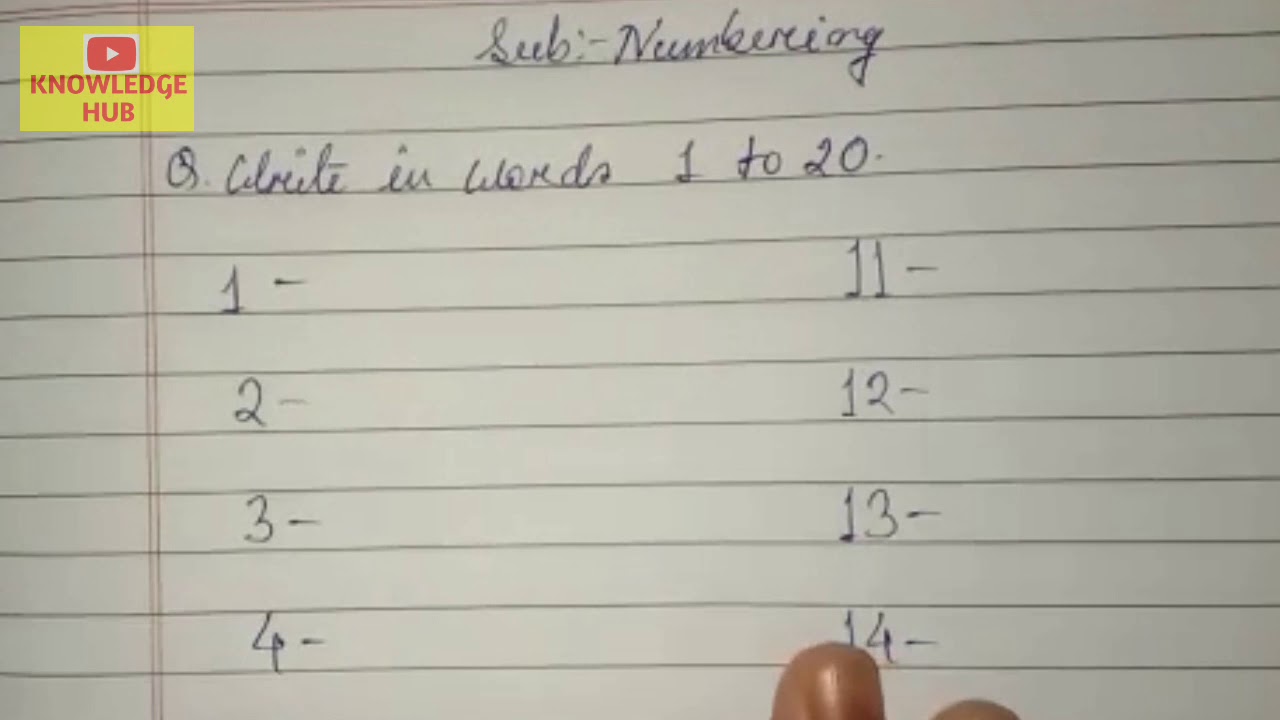 KNOWLEDGE
HUB
Sub:- Numbereing
Q. Write in words 1 to 20.
1 - 11 -
2 - 12 -
3 - 13 -
4 - 14 -